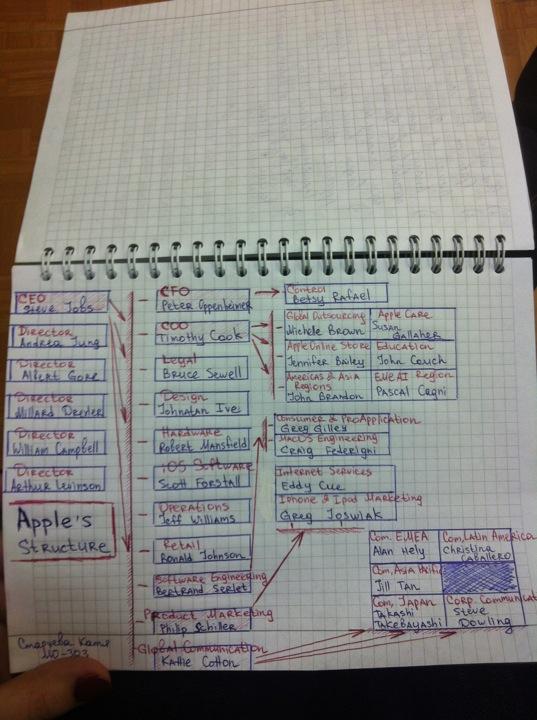 CEO
Steve Jobs
Director
Andrea Jung
Director
Albert Gore
Director
Millard Drexler
Director
William Campbell
Director
Arthur Levinson
Apple's
Structure
Старуева Катя
МО-303
CFO
Peter Oppenheimer
COO
Timothy Cook
Legal
Bruce Sewell
Design
Johnatan Ive
Hardware
Robert Mansfield
iOS Software
Scott Forstall
Operations
Jeff Williams
Retail
Ronald Johnson
Software Engineering
Bertrand Serlet
Product Marketing
Philip Schiller
Global Communication
Katie Cotton
Control
Betsy Rafael
Global Outsourcing
Michele Brown
Apple Care
Susan
Gallaher
Apple Online Store
Jennifer Bailey
Education
John Couch
Americas & Asia
Regions
John Brandon
EMEAI Region
Pascal Cagni
Consumer & ProApplication
Greg Gilley
MacOS Engineering
Craig Federighi
Internet Services
Eddy Cue
Iphone & Ipod Marketing
Greg Joswiak
Com. EMEA
Alan Hely
Com, Latin America
Christina
Caballero
Com, Asia Pacific
Jill Tan
Com, Japan
Takashi
Takebayashi
Corp. Communicat
Steve
Dowling